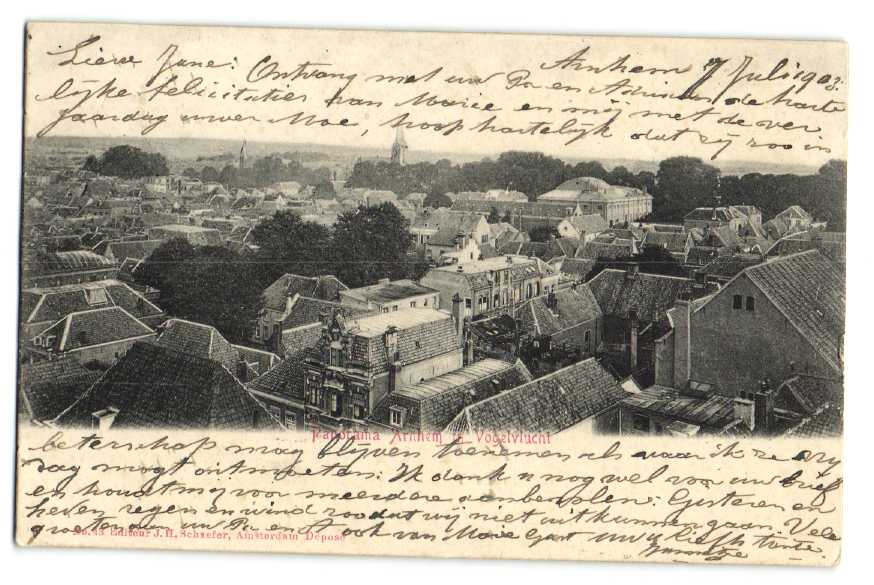 Arnhem 7 Juli 1903.
Lieve Jane: Ontvang met uw Pa en Adriaan de harte
lijke felicitaties van Marie en mij met de ver
jaardag uwer Moe, hoop hartelijk dat zij zoo in
Panorama Arnhem in Vogelvlucht
beterschap mag blijven toenemen als waar ik ze
dag mogt ontmoeten. Ik dank u nog wel voor uw brief
en houdt mij voor meerdere aanbevolen: Gisteren en
heden regen en wind zoodat wij niet uit kunnen gaan. Vele
groeten aan uw Pa en ook van Moe
No. 33 Editeur J.H. Schaefer, Amsterdam Déposé